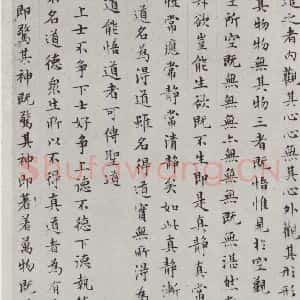 之者內觀其心心無其心外觀其形形
其物物無其物三者既悟惟見於空觀
空所空既無無無亦無無無既無湛
寂欲豈能生欲既不生即是真靜真常
性常應常靜常清靜矣如此真靜漸
道名為得道雖名得道實無所得為
道能悟道者可傳聖道
上士不爭下士好爭上德不德下德執
不名道德眾生所以不得真道者為有
即驚其神既驚其神即著萬物既
Shufawang.CN